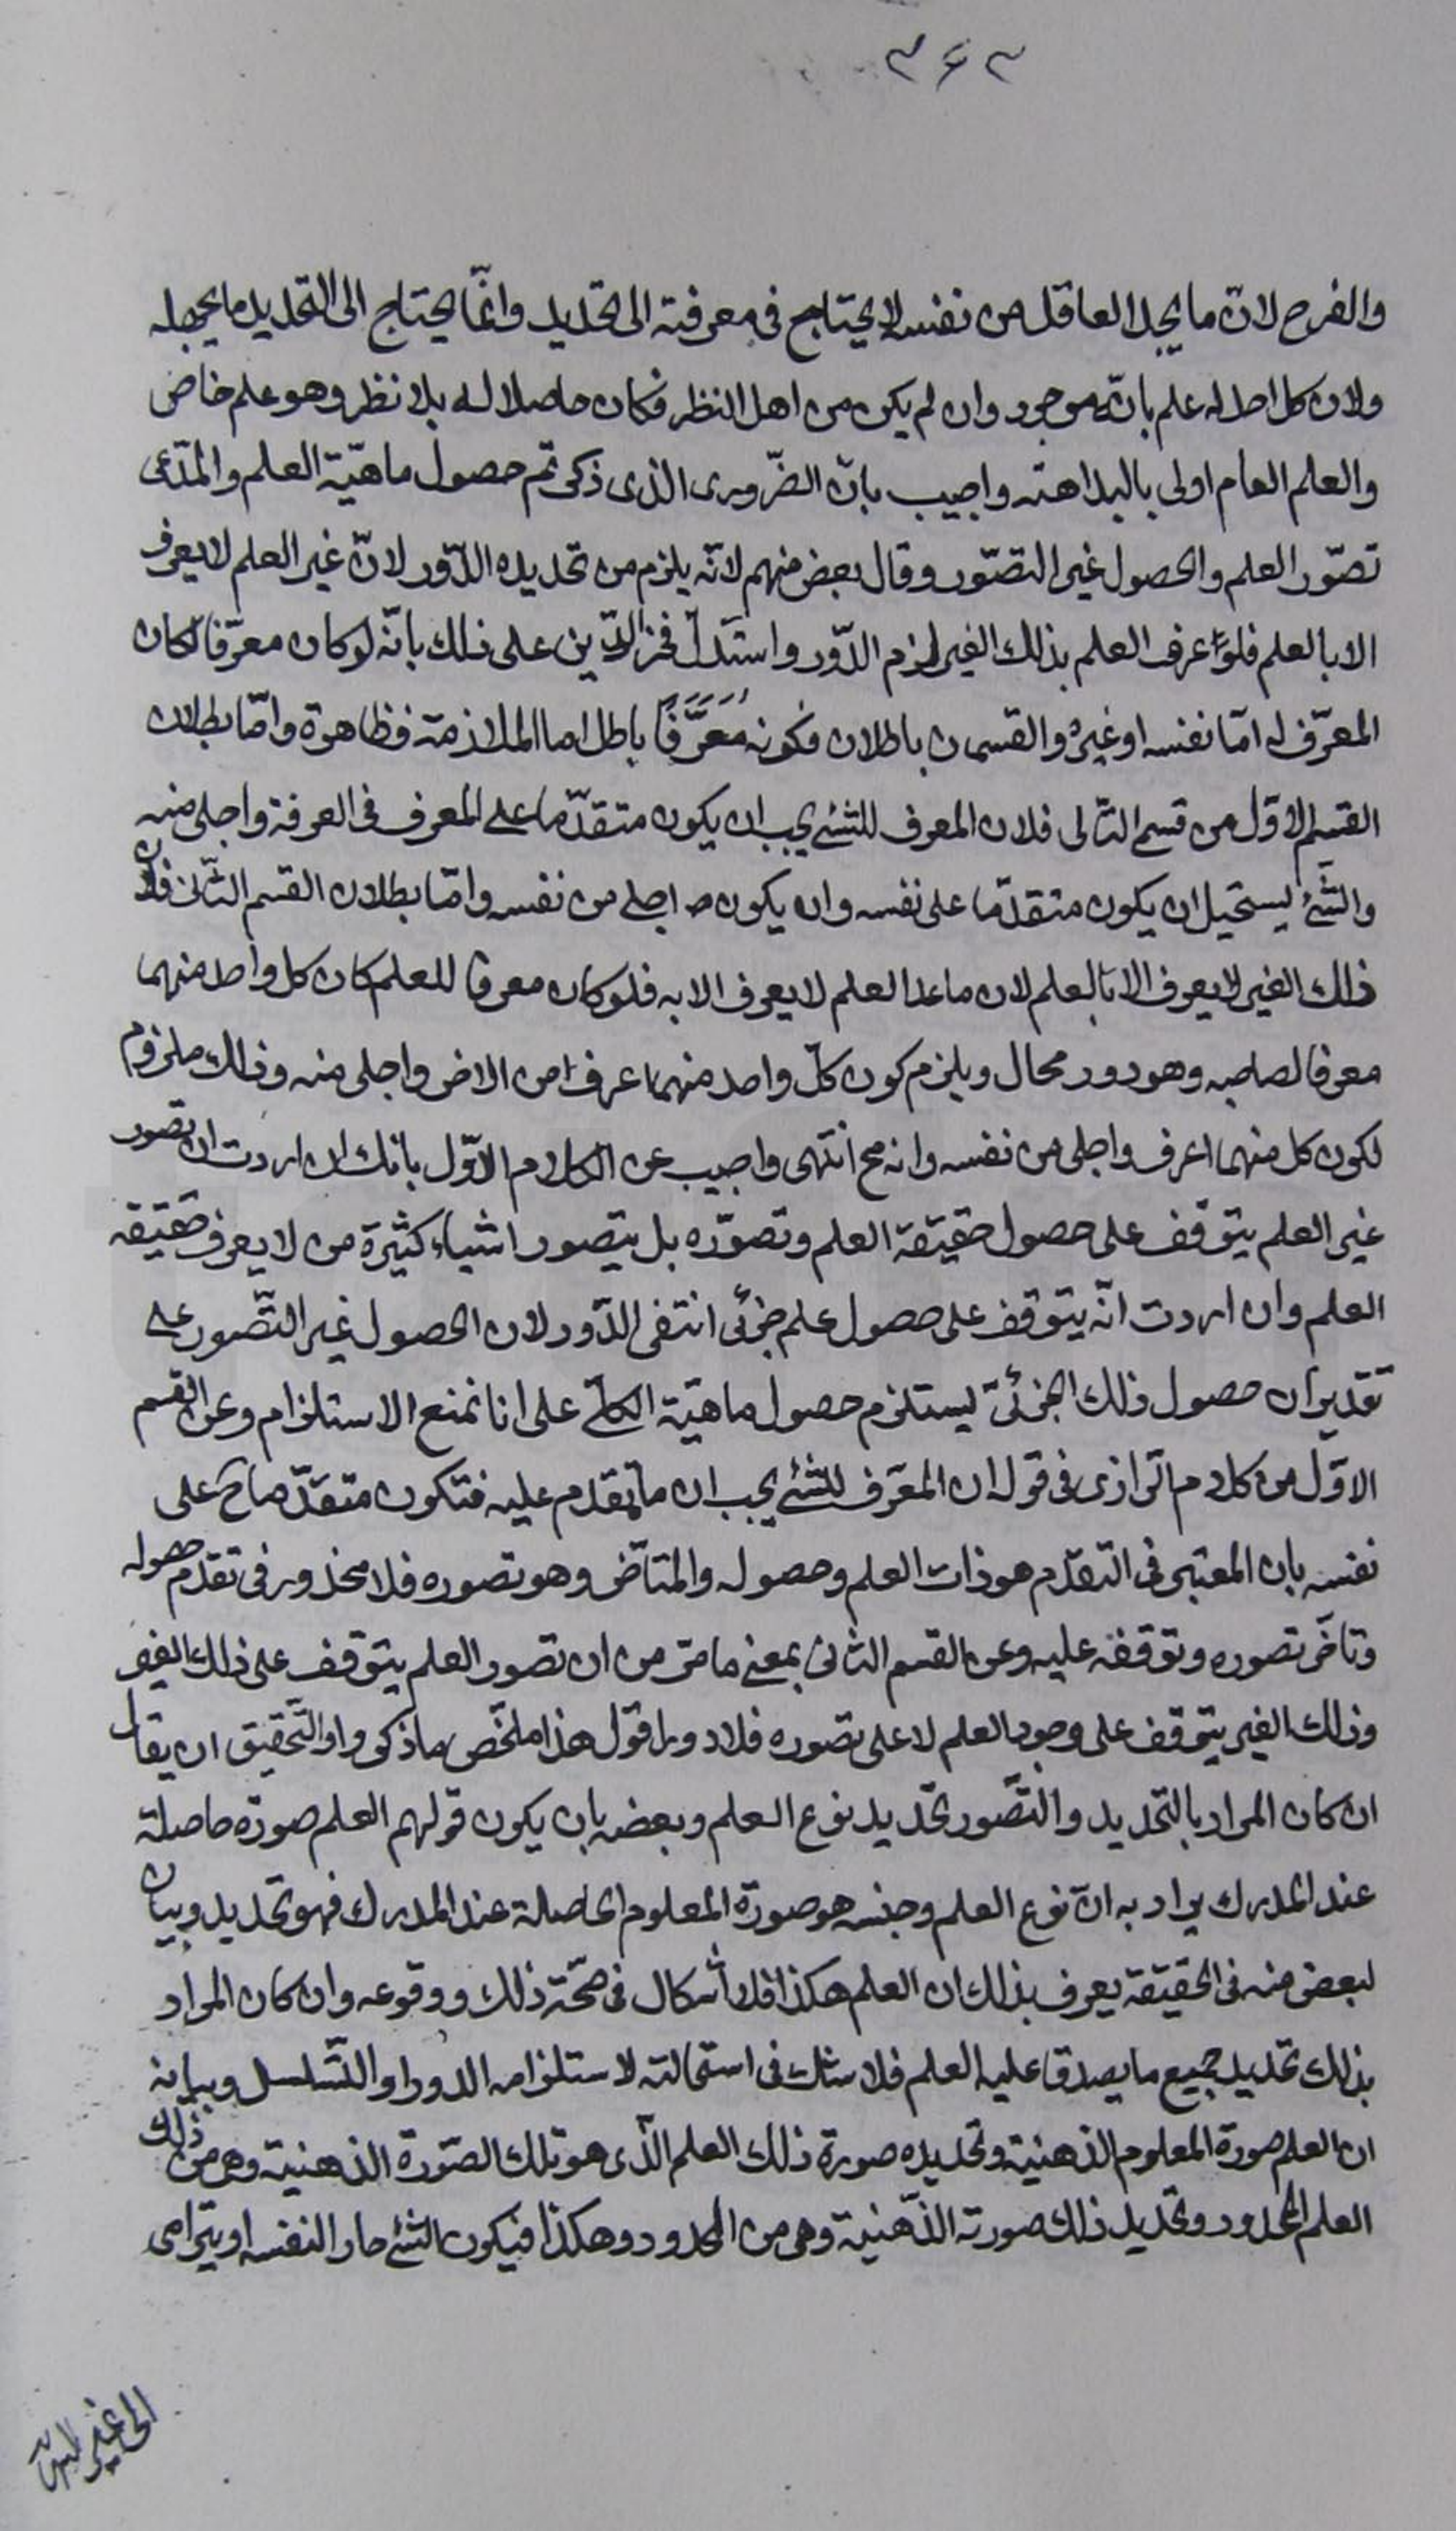 ٣٤٣
والفرح لانّ ما يجد العاقل من نفسه لا يحتاج فى معرفته الى تحديد وانّما يحتاج الى التحديد ما يجهله
ولان كل احد له علم بانّه موجود وان لم يكن من اهل النظر فكان حاصلا له بلا نظر وهو علم خاص
والعلم العام اولى بالبداهته واجيب بانّ الضّرورى الذى ذكرتم حصول ماهيّة العلم والمدّعى
تصوّر العلم والحصول غير التصّور وقال بعض منهم لانّه يلزم من تحديده الدّور لانّ غير العلم لا يعرف
الا بالعلم فلو عرف العلم بذلك الغير لزم الدّور واستدلّ فخر الدّين على ذلك بانّه لو كان معرّفا لكان
المعرّف له امّا نفسه او غيره والقسمان باطلان فكونه مُعَرَّفًا باطل اما الملازمة فظاهرة وامّا بطلان
القسم الاوّل من قسم التالى فلان المعرف للشئ يجب ان يكون متقدّما على المعرف فى المعرفة واجلى منه
والشئ يستحيل ان يكون متقدّما على نفسه وان يكون اجلى من نفسه وامّا بطلان القسم الثّانى فلان
ذلك الغير لا يعرف الا بالعلم لان ما عدا العلم لا يعرف الا به فلو كان معرفا للعلم كان كل واحد منهما
معرفا لصاحبه وهو دور محال ويلزم كون كلّ واحد منهما اعرف من الاخر واجلى منه وذلك ملزوم
لكون كل منهما اعرف واجلى من نفسه وانه مح انتهى واجيب عن الكلام الاوّل بانك ان اردت ان تصور
غير العلم يتوقف على حصول حقيقة العلم وتصوّره بل يتصور اشياء كثيرة من لا يعرف حقيقة
العلم وان اردت انّه يتوقف على حصول علم جزئى انتفى الدّور لان الحصول غير التّصور على
تقدير ان حصول ذلك الجزئى يستلزم حصول ماهيّة الكلّى على انا نمنع الاستلزام وعن القسم
الاوّل من كلام الرازى فى قوله ان المعرّف للشئ يجب ان ما تقدم عليه فتكون متقدّما ح على
نفسه بان المعتبر فى التقدّم هو ذات العلم وحصوله والمتاخر وهو تصوره فلا محذور فى تقدم حصوله
وتاخّر تصوره وتوقفه عليه وعن القسم الثانى بمعنى ما مرّ من ان تصور العلم يتوقف على ذلك الغير
وذلك الغير يتوقف على وجود العلم لا على تصوره فلا دور اقول هذا ملخّص ما ذكروا والتّحقيق ان يقال
ان كان المراد بالتحديد والتّصور تحديد نوع العلم وبعضه بان يكون قولهم العلم صورة حاصلة
عند المدرك يراد به انّ نوع العلم وجنسه هو صورة المعلوم الحاصلة عند المدرك فهو تحديد وبيان
لبعض منه فى الحقيقة يعرف بذلك ان العلم هكذا فلا اشكال فى صحّة ذلك ووقوعه وان كان المراد
بذلك تحديد جميع ما يصدق عليه العلم فلا شك فى استحالته لاستلزامه الدور او التّسلسل وبيانه
ان العلم صورة المعلوم الذهنية وتحديده صورة ذلك العلم الّذى هو تلك الصّورة الذهنية وهى من ذلك
العلم المحدود وتحديد ذلك صورته الذّهنية وهى من المحدود وهكذا فيكون الشئ حادا لنفسه او يترامى
الى غير